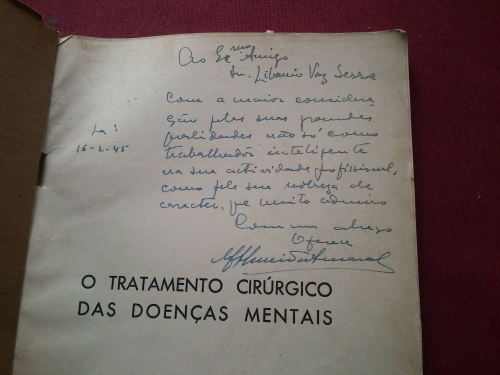 Ao Exmo Amigo
Dr. Libanio Vaz Serra
Com a maior considera
ção pelas suas grandes
qualidades não só como
trabalhador inteligente
na sua actividade profissional,
como pela sua nobreza de
caracter, que muito admiro
Com um abraço
Oferece
16-2-45
O TRATAMENTO CIRÚRGICO
DAS DOENÇAS MENTAIS